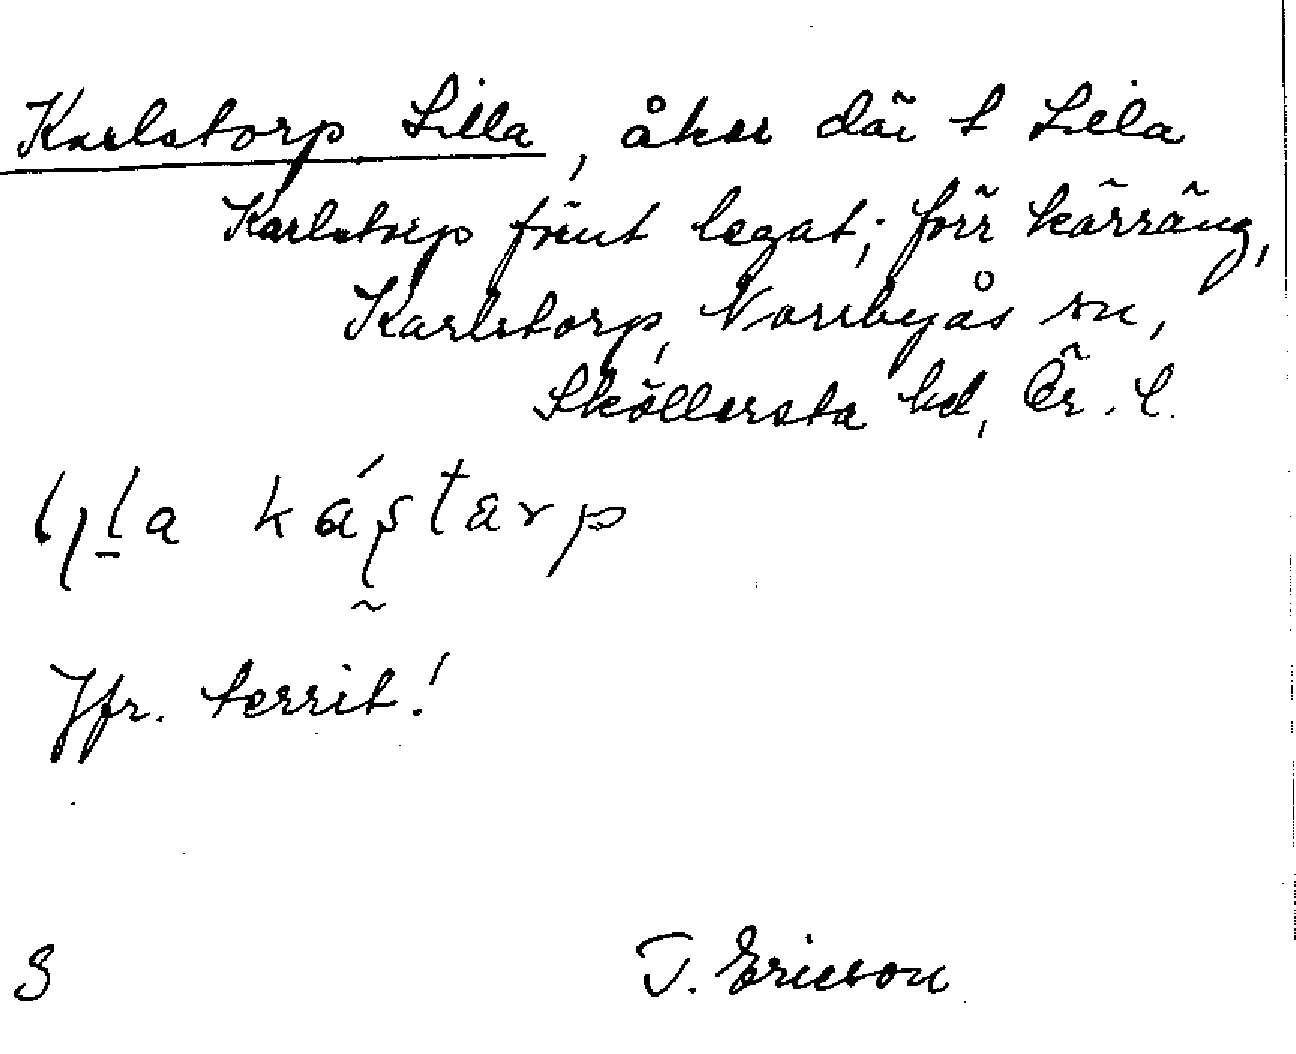 Karlstorp Lilla, åker där t Lilla
Karlstorp förut legat; förr kärräng,
Karlstorp, Norrbyås sn,
Sköllersta hd, Ör. l.
kástarp
Jfr. territ!
T. Ericson